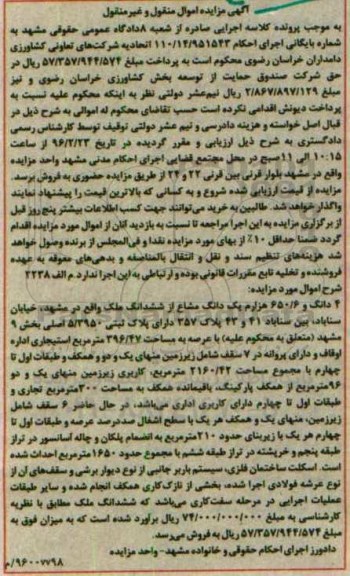 آگهی مزایده اموال منقول و غیرمنقول
به موجب پرونده کلاسه اجرایی صادره از شعبه ۸دادگاه عمومی حقوقی مشهد به
شماره بایگانی اجرای احکام ۱۱۰/۱۴/۹۵۱۵۴۳ اتحادیه شرکت‌های تعاونی کشاورزی
دامداران خراسان رضوی محکوم است به پرداخت مبلغ ۵۷/۳۵۷/۹۴۴/۵۷۴ ریال در
حق شرکت صندوق حمایت از توسعه بخش کشاورزی خراسان رضوی و نیز
مبلغ ۲/۸۶۷/۸۹۷/۱۲۹ ریال نیم‌عشر دولتی نظر به اینکه محکوم علیه نسبت به
پرداخت دیونش اقدامی نکرده است حسب تقاضای محکوم له اموالی به شرح ذیل در
قبال اصل خواسته و هزینه دادرسی و نیم عشر دولتی توقیف توسط کارشناس رسمی
دادگستری به شرح ذیل ارزیابی و مقرر گردیده در تاریخ ۹۶/۲/۲۳ از ساعت
۱۰:۱۵ الی ۱۱صبح در محل مجتمع قضایی اجرای احکام مدنی مشهد واحد مزایده
واقع در مشهد بلوار قرنی بین قرنی ۲۲ و ۲۴ از طریق مزایده حضوری به فروش برسد.
مزایده از قیمت ارزیابی شده شروع و به کسانی که بالاترین قیمت را پیشنهاد نمایند
واگذار خواهد شد. طالبین به خرید می‌توانند جهت کسب اطلاعات بیشتر پنج روز قبل
از برگزاری مزایده به این اجرا مراجعه تا نسبت به بازدید آنان از اموال مورد مزایده اقدام
گردد ضمنا حداقل ۱۰٪ از بهای مورد مزایده نقدا و فی‌المجلس از برنده وصول خواهد
شد هزینه‌های تنظیم سند و نقل و انتقال بالمناصفه و بدهی‌های معوقه به عهده
فروشنده و تخلیه تابع مقررات قانونی بوده و ارتباطی به این اجرا ندارد.م الف ۲۲۳۸
شرح اموال مورد مزایده:
۴ دانگ و ۶۵۰/۶ هزارم یک دانگ مشاع از ششدانگ ملک واقع در مشهد، خیابان
سناباد، بین سناباد ۴۱ و ۴۳ پلاک ۳۵۷ دارای پلاک ثبتی ۵/۳۹۵۰ اصلی بخش ۹
مشهد (متعلق به محکوم علیه) با عرصه به مساحت ۳۹۶/۴۷ مترمربع استیجاری اداره
اوقاف و دارای پروانه در ۷ سقف شامل زیرزمین منهای یک و دو و همکف و طبقات اول تا
چهارم با مجموع مساحت ۲۱۶۰/۴۲ مترمربع، کاربری زیرزمین منهای یک و دو
۹۶مترمربع از همکف پارکینگ، باقیمانده همکف به مساحت ۳۰۰مترمربع تجاری و
طبقات اول تا چهارم دارای کاربری اداری می‌باشد، در حال حاضر ۶ سقف شامل
زیرزمین، منهای یک و همکف هر یک با سطح اشغال صددرصد عرصه و طبقات اول تا
چهارم هر یک با زیربنای حدود ۲۱۰مترمربع به انضمام پلکان و چاله آسانسور در تراز
طبقه پنجم و خرپشته در تراز طبقه ششم با مجموع حدود ۱۶۵۰مترمربع احداث شده
است. اسکلت ساختمان فلزی، سیستم باربر جانبی از نوع دیوار برشی و سقف‌های آن از
نوع عرشه فولادی اجرا شده، بخشی از نازک کاری همکف انجام شده و سایر طبقات
عملیات اجرایی در مرحله سفت‌کاری می‌باشد که ششدانگ ملک مطابق با نظریه
کارشناسی به مبلغ ۷۴/۰۰۰/۰۰۰/۰۰۰ ریال برآورد شده است که به میزان فوق به
مبلغ ۵۷/۳۵۷/۹۴۴/۵۷۴ ریال به فروش می‌رسد.
دادورز اجرای احکام حقوقی و خانواده مشهد- واحد مزایده
۹۶۰۰۷۷۹۸/م